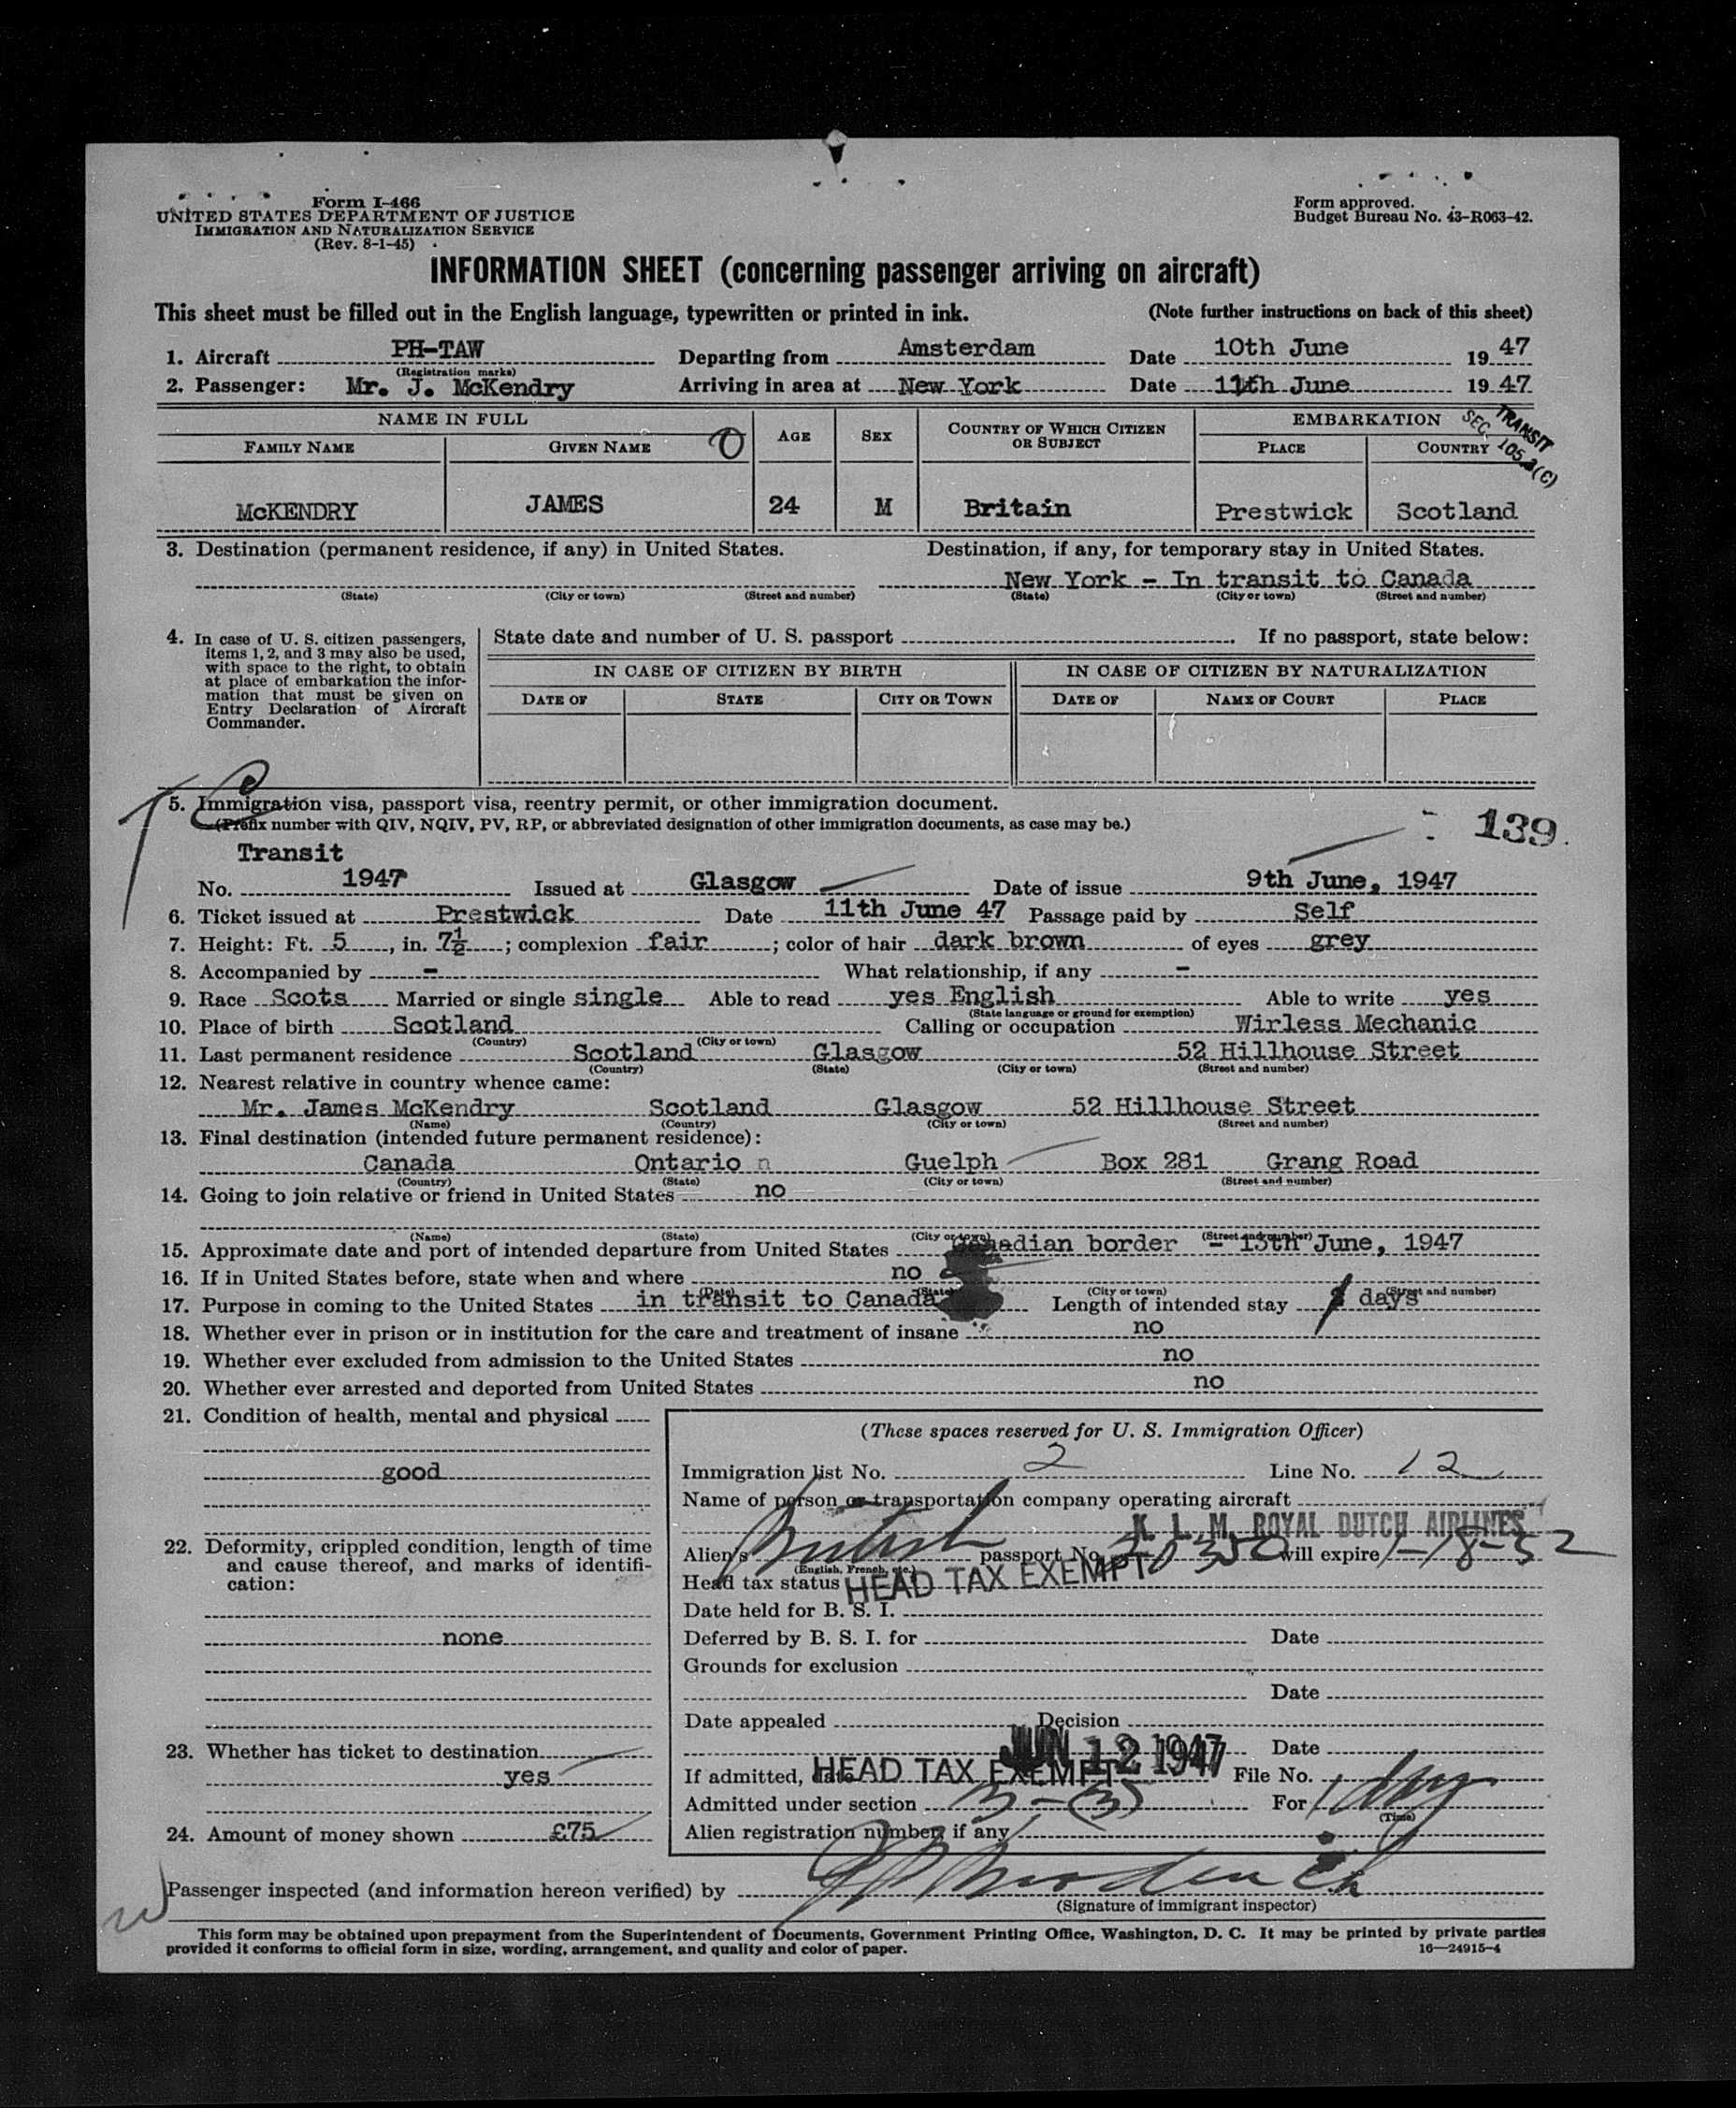 Form I-466
UNITED STATES DEPARTMENT OF JUSTICE
IMMIGRATION AND NATURALIZATION SERVICE
(Rev. 8-1-45)
Form approved.
Budget Bureau No. 43-R063-42.
INFORMATION SHEET (concerning passenger arriving on aircraft)
This sheet must be filled out in the English language, typewritten or printed in ink. (Note further instructions on back of this sheet)
1. Aircraft PH-TAW Departing from Amsterdam Date 10th June 19 47
(Registration marks)
2. Passenger: Mr. J. McKendry Arriving in area at New York Date 11th June 19 47
TRANSIT
SEC. 105.3(C)
NAME IN FULL AGE SEX COUNTRY OF WHICH CITIZEN OR SUBJECT EMBARKATION
FAMILY NAME GIVEN NAME PLACE COUNTRY
McKENDRY JAMES 24 M Britain Prestwick Scotland
3. Destination (permanent residence, if any) in United States. Destination, if any, for temporary stay in United States.
New York - In transit to Canada
(State) (City or town) (Street and number) (State) (City or town) (Street and number)
4. In case of U. S. citizen passengers, items 1, 2, and 3 may also be used, with space to the right, to obtain at place of embarkation the information that must be given on Entry Declaration of Aircraft Commander.
State date and number of U. S. passport If no passport, state below:
IN CASE OF CITIZEN BY BIRTH IN CASE OF CITIZEN BY NATURALIZATION
DATE OF STATE CITY OR TOWN DATE OF NAME OF COURT PLACE
5. Immigration visa, passport visa, reentry permit, or other immigration document.
(Prefix number with QIV, NQIV, PV, RP, or abbreviated designation of other immigration documents, as case may be.)
139
Transit
No. 1947 Issued at Glasgow Date of issue 9th June, 1947
6. Ticket issued at Prestwick Date 11th June 47 Passage paid by Self
7. Height: Ft. 5, in. 7½; complexion fair; color of hair dark brown of eyes grey
8. Accompanied by - What relationship, if any -
9. Race Scots Married or single single Able to read yes English Able to write yes
(State language or ground for exemption)
10. Place of birth Scotland Calling or occupation Wirless Mechanic
(Country) (City or town)
11. Last permanent residence Scotland Glasgow 52 Hillhouse Street
(Country) (State) (City or town) (Street and number)
12. Nearest relative in country whence came:
Mr. James McKendry Scotland Glasgow 52 Hillhouse Street
(Name) (Country) (City or town) (Street and number)
13. Final destination (intended future permanent residence):
Canada Ontario n Guelph Box 281 Grang Road
(Country) (State) (City or town) (Street and number)
14. Going to join relative or friend in United States no
(Name) (State) (City or town) (Street and number)
15. Approximate date and port of intended departure from United States Canadian border - 13th June, 1947
16. If in United States before, state when and where no
(Date) (State) (City or town) (Street and number)
17. Purpose in coming to the United States in transit to Canada Length of intended stay days
18. Whether ever in prison or in institution for the care and treatment of insane no
19. Whether ever excluded from admission to the United States no
20. Whether ever arrested and deported from United States no
21. Condition of health, mental and physical
good
22. Deformity, crippled condition, length of time and cause thereof, and marks of identification:
none
23. Whether has ticket to destination
yes
24. Amount of money shown £75
(These spaces reserved for U. S. Immigration Officer)
Immigration list No. 2 Line No. 12
Name of person or transportation company operating aircraft
K. L. M. ROYAL DUTCH AIRLINES
Alien's British passport No. will expire 1-18-52
(English, French, etc.)
Head tax status HEAD TAX EXEMPT
Date held for B. S. I.
Deferred by B. S. I. for Date
Grounds for exclusion
Date
Date appealed Decision
JUN 12 1947 Date
If admitted, date HEAD TAX EXEMPT File No.
Admitted under section 3-(3) For 1 day
(Time)
Alien registration number, if any
Passenger inspected (and information hereon verified) by
(Signature of immigrant inspector)
This form may be obtained upon prepayment from the Superintendent of Documents, Government Printing Office, Washington, D. C. It may be printed by private parties
provided it conforms to official form in size, wording, arrangement, and quality and color of paper. 16—24915-4